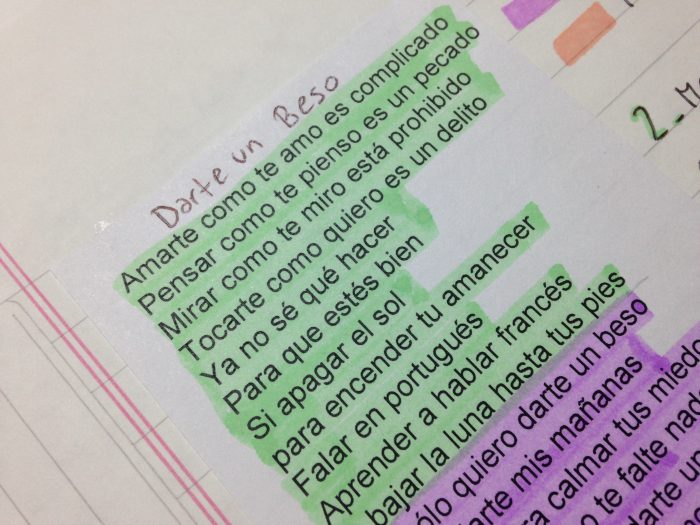 Darte un Beso
Amarte como te amo es complicado
Pensar como te pienso es un pecado
Mirar como te miro está prohibido
Tocarte como quiero es un delito
Ya no sé qué hacer
Para que estés bien
Si apagar el sol
para encender tu amanecer
Falar en portugués
Aprender a hablar francés
bajar la luna hasta tus pies
quiero darte un beso
mis mañanas
calmar tus
te falte
un
2.-